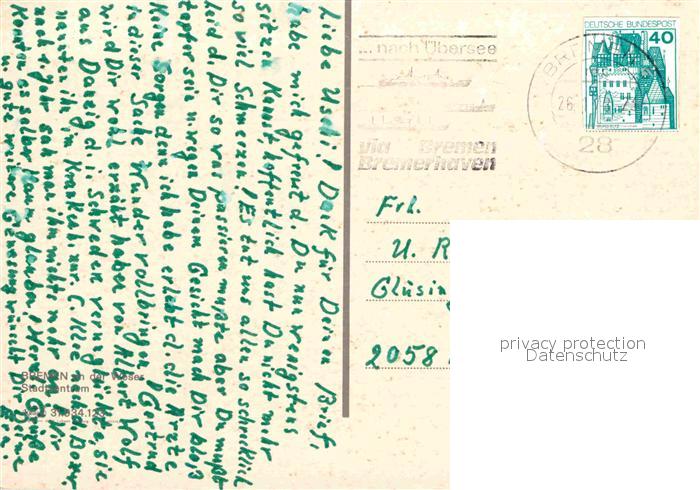 Liebe Uschi! Dank für Deinen Brief,
habe mich gefreut d. Du nun wenigstens
sitzen kannst, hoffentlich hast Du nicht mehr
so viel Schmerzen! Es tut uns allen so schrecklich
leid d. Dir so was passieren mußte aber Du mußt
tapfer sein u. wegen Deinem Gesicht mach Dir bloß
keine Sorgen denn ich habe erlebt d. die Ärzte
in dieser Sache Wunder vollbringen! Gertrud
wird Dir wohl erzählt haben von Wolf
aus Danzig d. i. Schweden verunglückte, sie
nannten ihn im Krankenh. nur
nach 1 Jahr sah man ihm nichts mehr an. Wir
konnten es selbst kaum glauben! Herzl. Grüße
u. gute weitere Genesung wünscht Dir
BREMEN an der Weser
Stadtzentrum
... nach Übersee
via Bremen
Bremerhaven
DEUTSCHE BUNDESPOST
40
28
Frl.
U. R
Glüsin
2058
privacy protection
Datenschutz